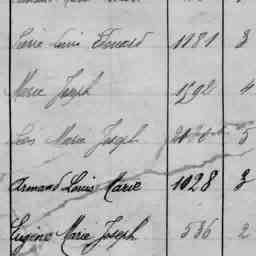 Pierre Louis Edouard 1181 3
Marie Joseph 1592 4
Marie Joseph 5
Armand Louis Marie 1028 3
Eugène Marie Joseph 536 2